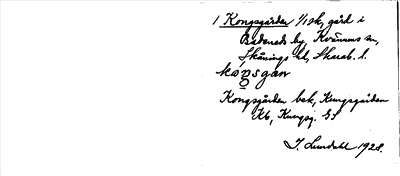 1 Kongsgården 1/1 sk, gård i
Badeneds by, Kvänums sn,
Skånings hd, Skarab. l.
kóŋsgan
Kongsgården bek, Kungsgården
Kb, Kungsg.
J. Lundahl 1928.